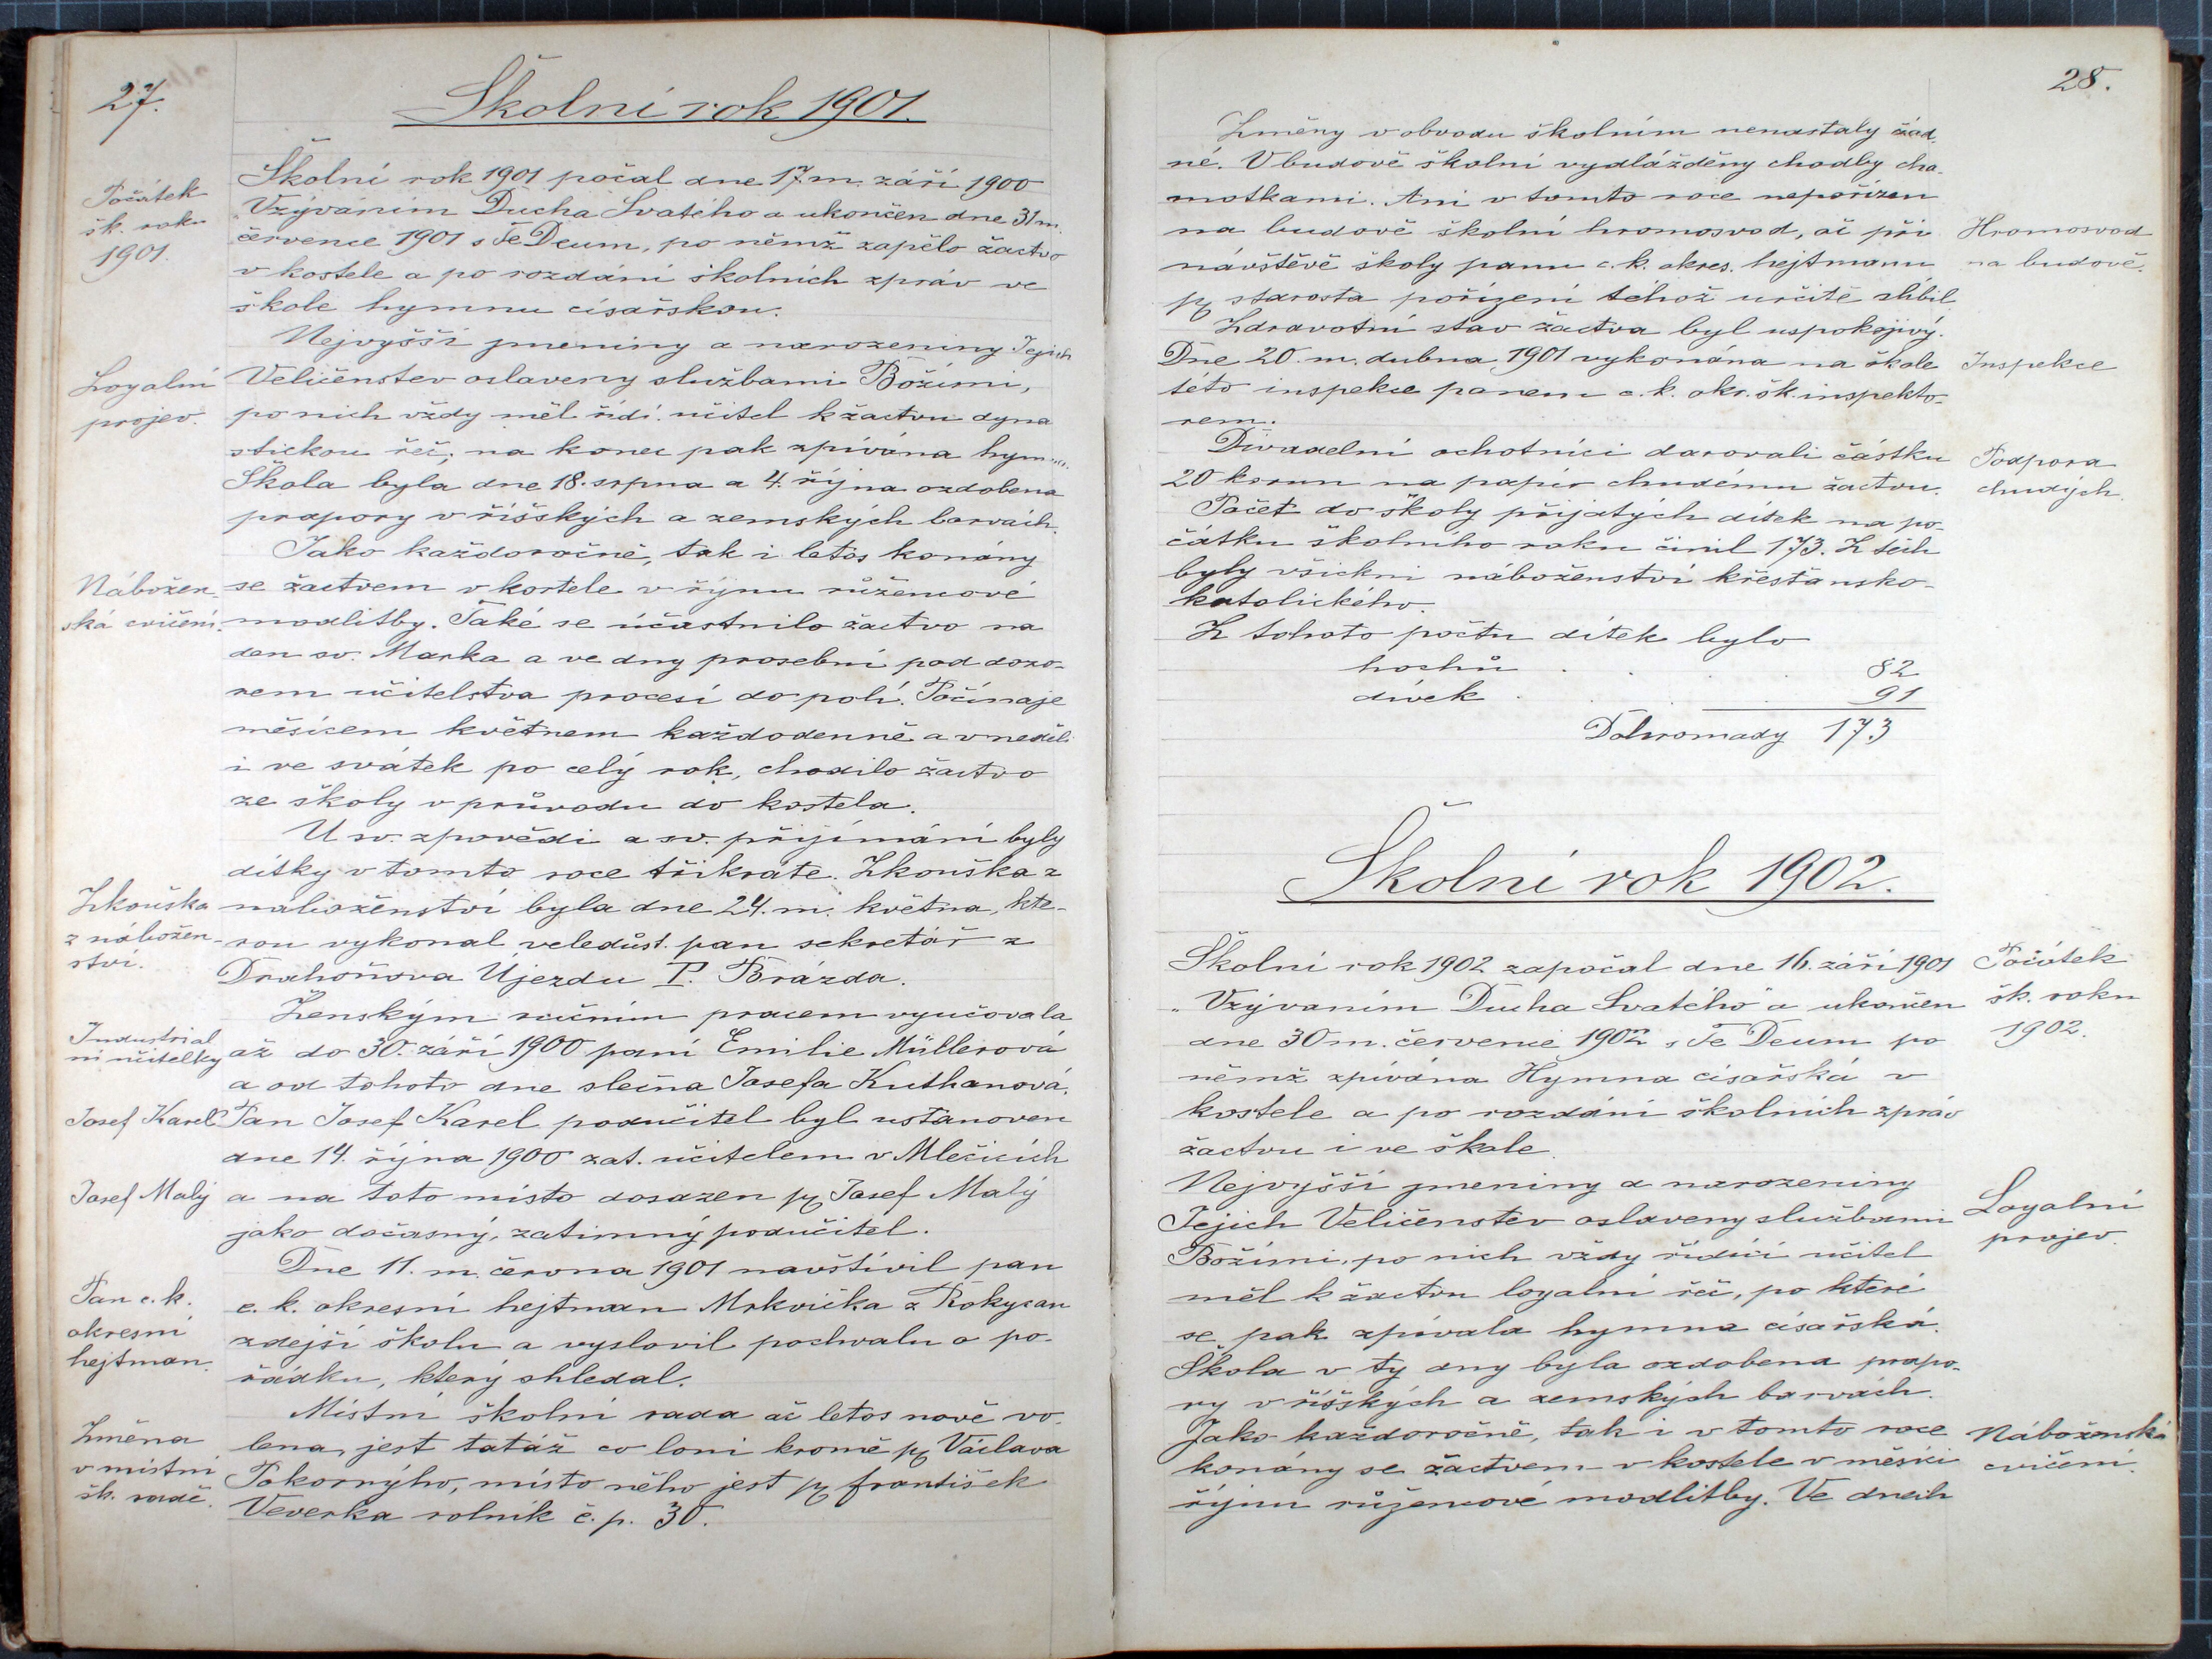 27.
Školní rok 1901.
Počátek
šk. roku
1901.
Školní rok 1901 počal dne 17. m. září 1900
„Vzýváním Ducha Svatého a ukončen dne 31 m.
července 1901 s Te Deum, po němž zapělo žactvo
v kostele a po rozdání školních zpráv ve
škole hymnu císařskou.
Loyalní
projev.
Nejvyšší jmeniny a narozeniny Jejich
Veličenstev oslaveny službami Božími,
po nich vždy měl řídí. učitel k žactvu dyna
stickou řeč, na konec pak zpívána hymna.
Škola byla dne 18. srpna a 4. října ozdobena
prapory v říšských a zemských barvách.
Nábožen
ská cvičení.
Jako každoročně, tak i letos konány
se žactvem v kostele v říjnu růžencové
modlitby. Také se účastnilo žactvo na
den sv. Marka a ve dny prosební pod dozo-
rem učitelstva procesí do polí. Počínaje
měsícem květnem každodenně a v neděli
i ve svátek po celý rok, chodilo žactvo
ze školy v průvodu do kostela.
U sv. zpovědi a sv. přijímání byly
dítky v tomto roce třikráte. Zkouška z
Zkouška
z nábožen-
ství.
náboženství byla dne 24. m. května, kte-
rou vykonal veledůst. pan sekretář z
Drahoňova Újezdu P. Brázda.
Industrial
ní učitelky
Ženským ručním pracem vyučovala
až do 30. září 1900 paní Emilie Müllerová
a od tohoto dne slečna Josefa Kuthanová.
Josef Karel
Pan Josef Karel podučitel byl ustanoven
dne 14. října 1900 zat. učitelem v Mlečicích
Josef Malý
a na toto místo dosazen p. Josef Malý
jako dočasný, zatimný podučitel.
Pan c. k.
okresní
hejtman.
Dne 11. m. června 1901 navštívil pan
c. k. okresní hejtman Mrkvička z Rokycan
zdejší školu a vyslovil pochvalu o po-
řádku, který shledal.
Změna
v místní
šk. radě.
Místní školní rada ač letos nově vo-
lena, jest tatáž co loni kromě p. Václava
Pokorného, místo něho jest p. František
Veverka rolník č. p. 30.
28.
Změny v obvodu školním nenastaly žád-
né. V budově školní vydlážděny chodby cha-
motkami. Ani v tomto roce nepořízen
na budově školní hromosvod, ač při
návštěvě školy panu c. k. okres. hejtmanu
p. starosta pořízení téhož určitě slíbil.
Hromosvod
na budově.
Zdravotní stav žactva byl uspokojivý.
Dne 20. m. dubna 1901 vykonána na škole
této inspekce panem c. k. okr. šk. inspekto-
rem.
Inspekce
Divadelní ochotníci darovali částku
20 korun na papír chudému žactvu.
Podpora
chudých.
Počet do školy přijatých dítek na po-
čátku školního roku činil 173. Z těch
byly všichni náboženství křesťansko-
katolického.
Z tohoto počtu dítek bylo
hochů . . . 82
dívek . . . 91
Dohromady 173
Školní rok 1902.
Školní rok 1902 započal dne 16. září 1901
„Vzýváním Ducha Svatého" a ukončen
dne 30 m. července 1902 s Te Deum po
němž zpívána Hymna císařská v
kostele a po rozdání školních zpráv
žactvu i ve škole.
Počátek
šk. roku
1902.
Nejvyšší jmeniny a narozeniny
Jejich Veličenstev oslaveny službami
Božími, po nich vždy řídící učitel
měl k žactvu loyalní řeč, po které
se pak zpívala hymna císařská.
Škola v ty dny byla ozdobena prapo-
ry v říšských a zemských barvách.
Loyalní
projev.
Jako každoročně, tak i v tomto roce
konány se žactvem v kostele v měsíci
říjnu růžencové modlitby. Ve dnech
Náboženská
cvičení.